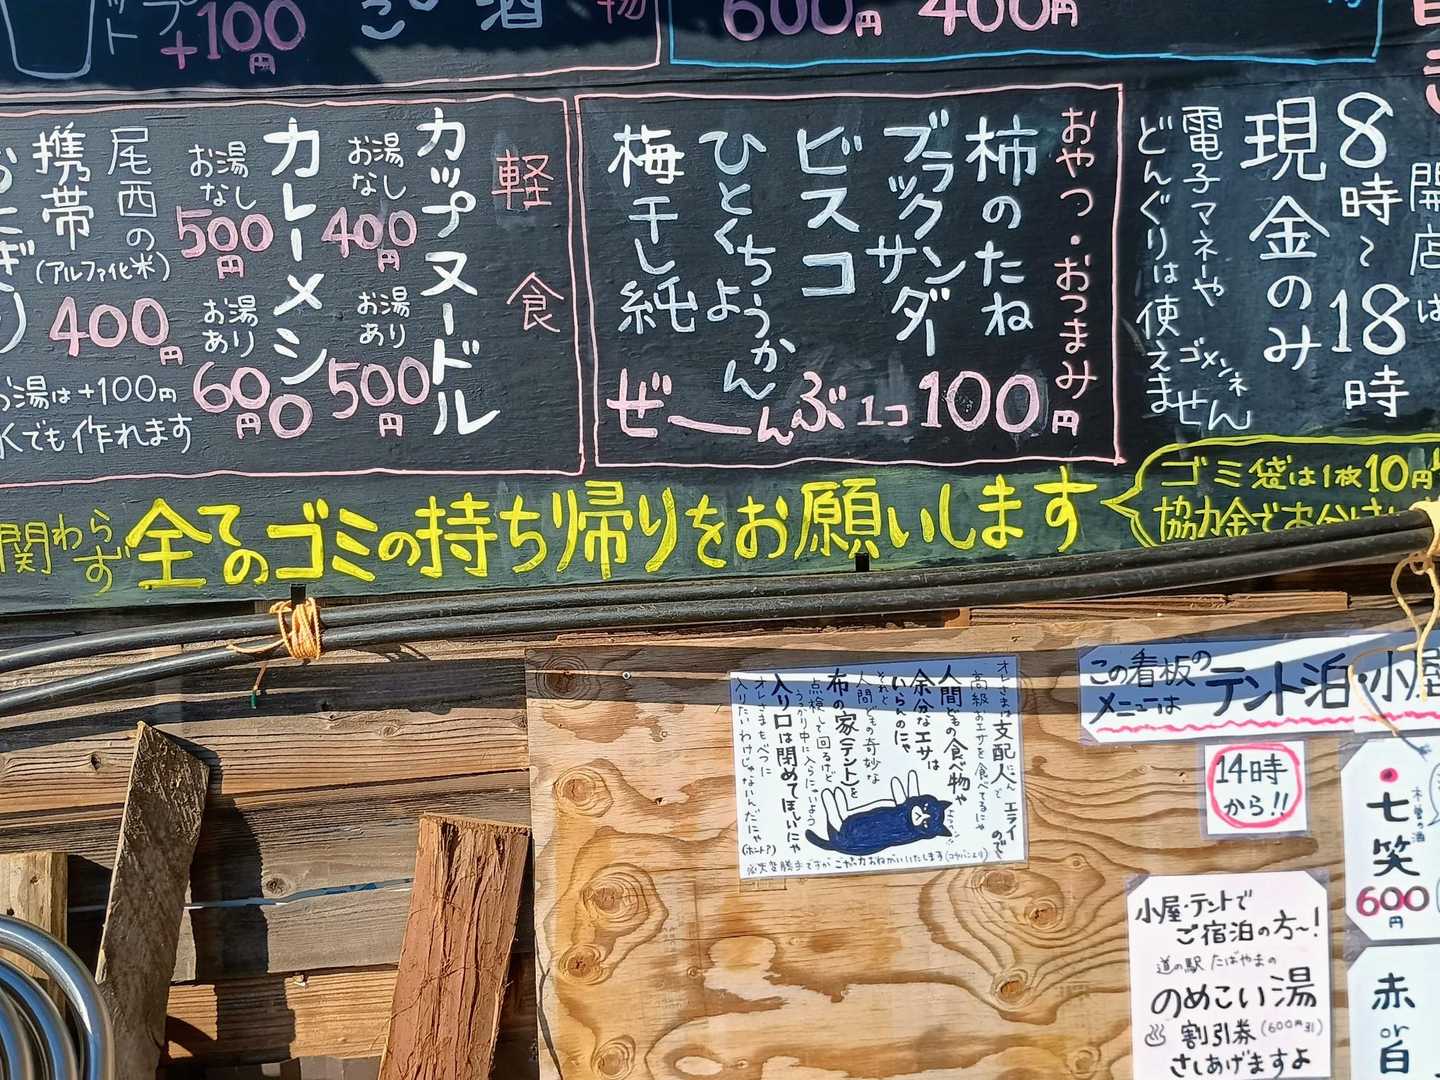 +100円
酒
物
600円
400円
開店は
8時～18時
現金のみ
電子マネーや
どんぐりは使えません
ゴメンネ
おやつ・おつまみ
柿のたね
ブラックサンダー
ビスコ
ひとくちようかん
梅干し純
ぜーんぶ1コ100円
軽食
カップヌードル
お湯なし
400円
お湯あり
500円
カレーメシ
お湯なし
500円
お湯あり
600円
尾西の
携帯
(アルファ化米)
400円
お湯は+100円
水でも作れます
関わらず全てのゴミの持ち帰りをお願いします
ゴミ袋は1枚10円
協力金で
オレさまは支配人にゃん
エライので
高級なエサを食べてるにゃ
人間どもの食べ物や
余分なエサは
いらんのにゃ
それと
人間どもの奇妙な
布の家(テント)を
点検して回るけど
入り口は閉めてほしいにゃ
オレさまもべつに
入りたいわけじゃないんだにゃ
(ホント?)
この看板の
メニューは
テント泊・小屋
14時から!!
七笑
600円
赤or白
小屋・テントで
ご宿泊の方〜!
道の駅 たばやまの
のめこい湯
割引券(600円引)
さしあげますよ